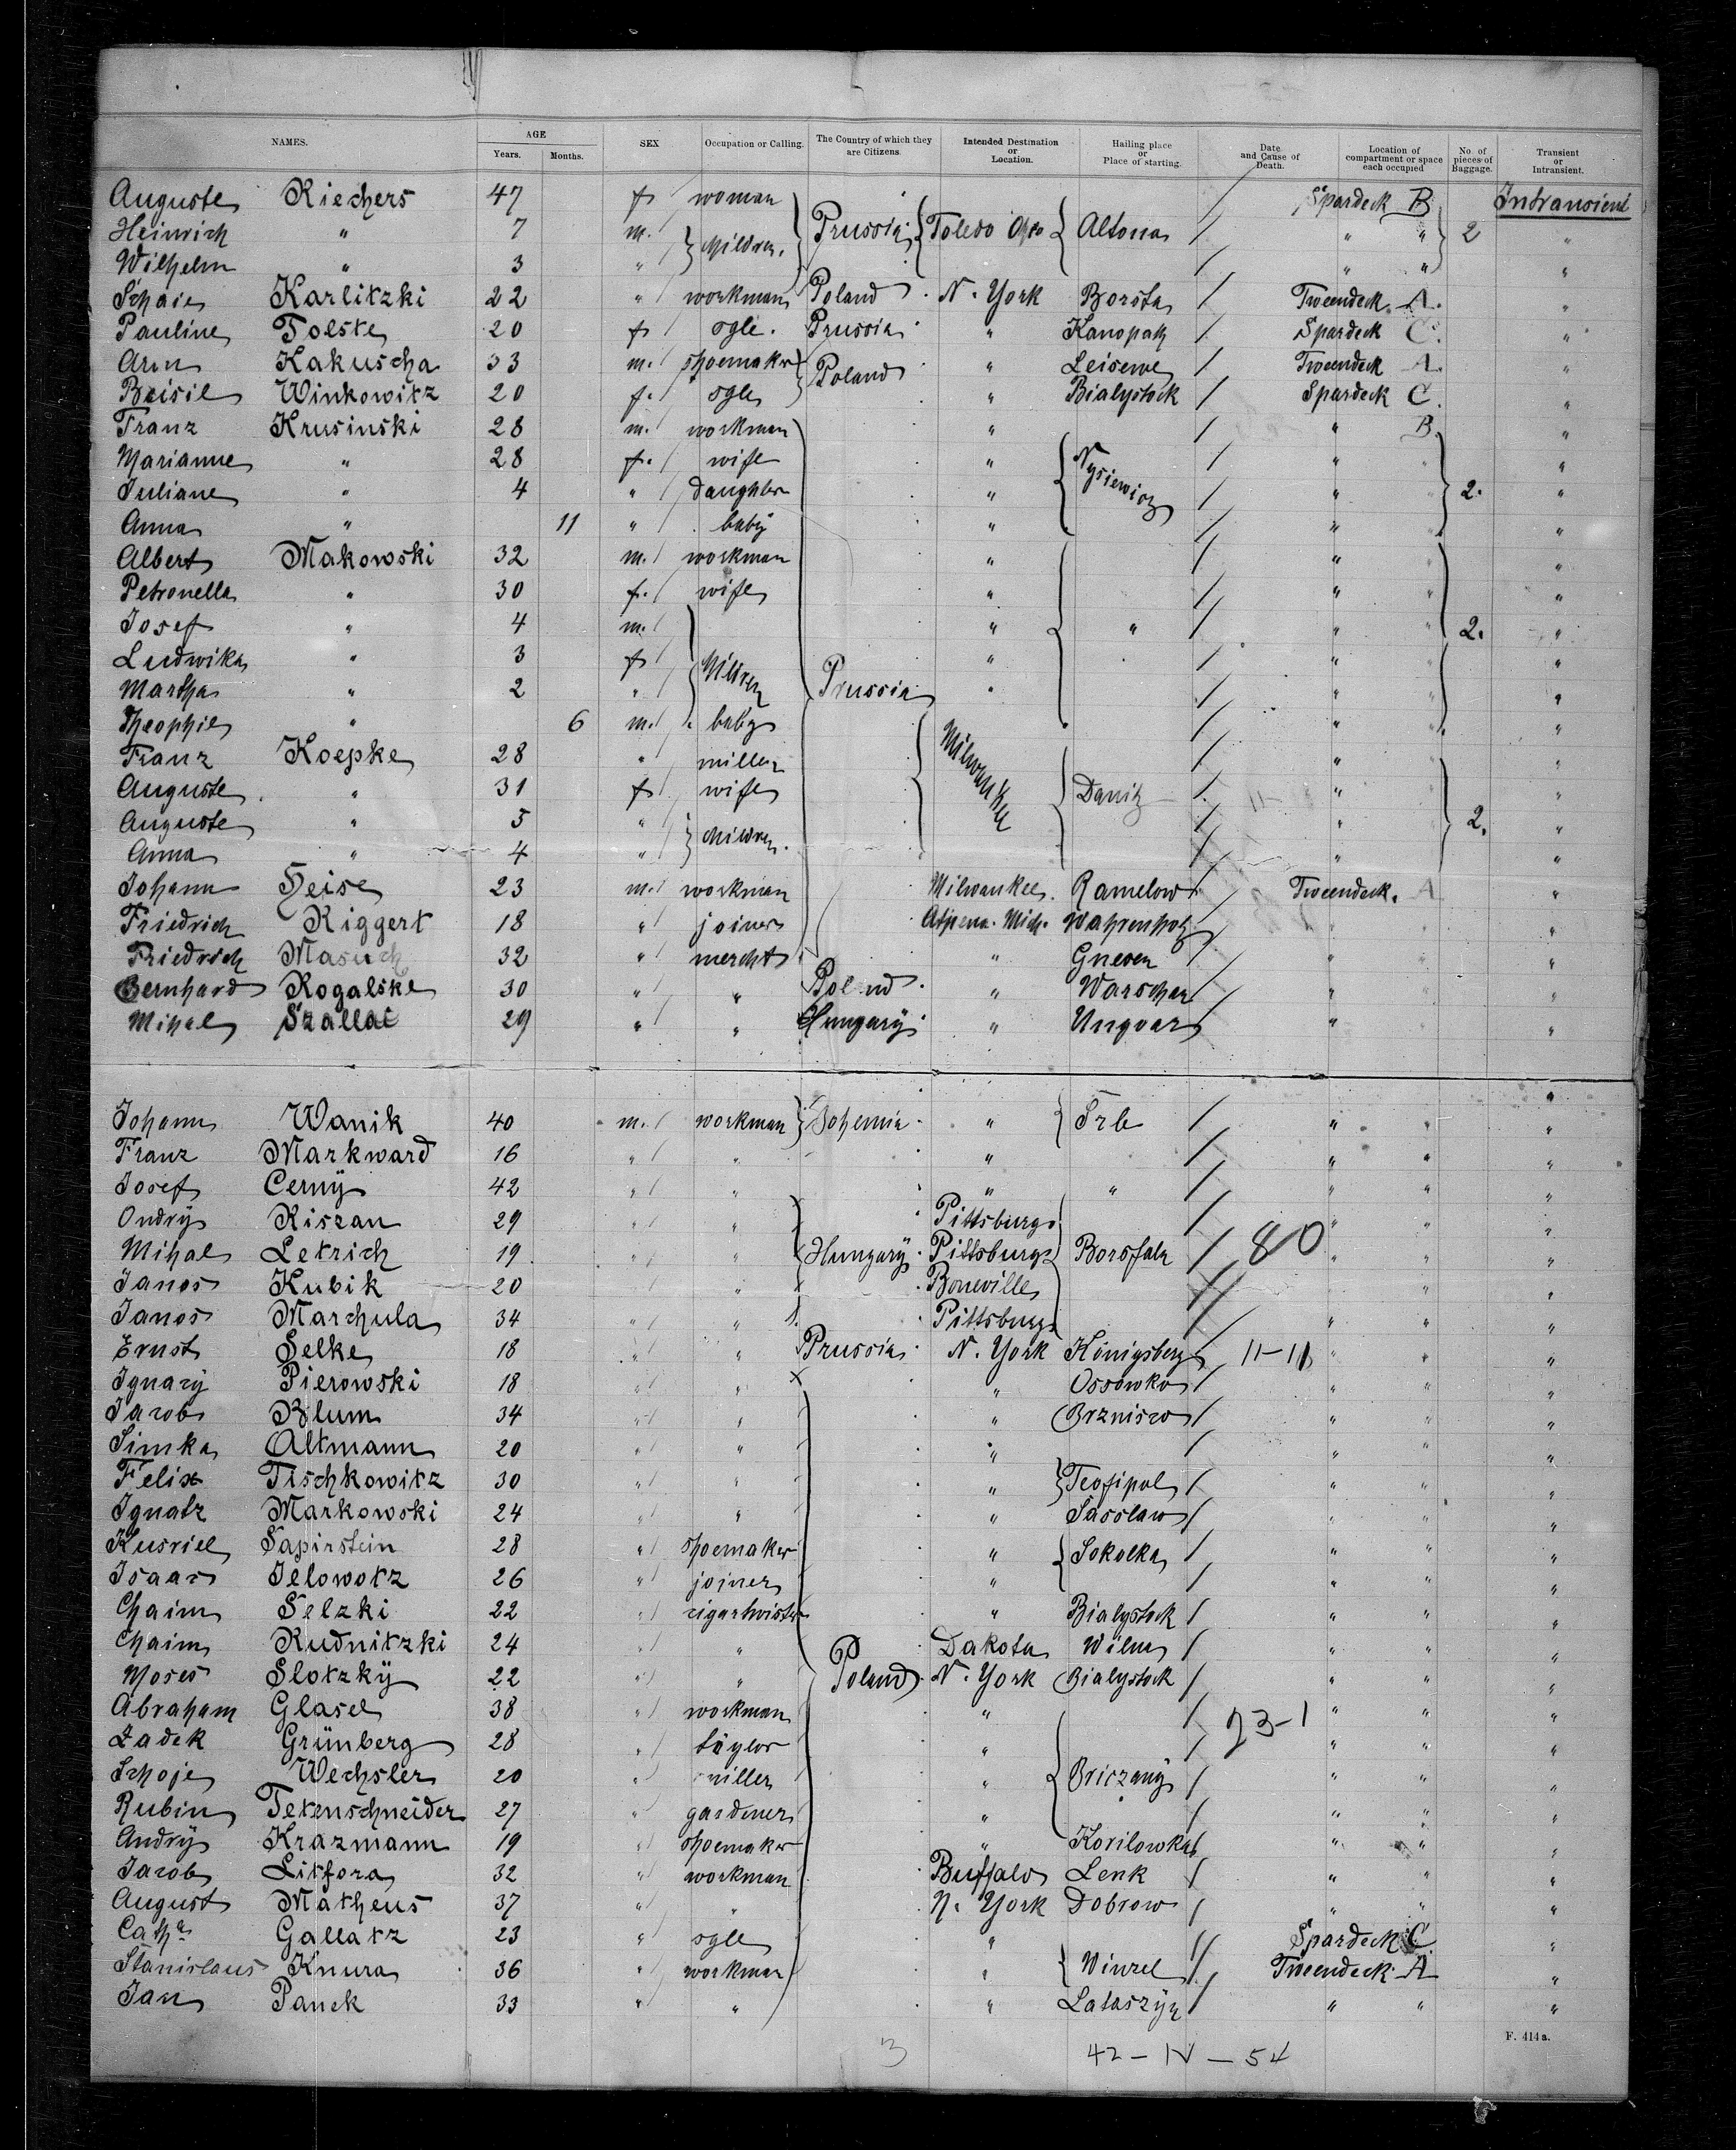 NAMES. AGE Years. Months. SEX Occupation or Calling. The Country of which they are Citizens. Intended Destination or Location. Hailing place or Place of starting. Date and Cause of Death. Location of compartment or space each occupied No. of pieces of Baggage. Transient or Intransient.
Auguste Riechers 47 f woman Spardeck B Intransient
Heinrich " 7 m. children. Prussia Toledo Altona " " 2 "
Wilhelm " 3 " " " "
Schaie Karlitzki 22 " workman Poland N. York Borsta Tweendeck A. "
Pauline Tolste 20 f sgle. Prussia " Kanopatz Spardeck C. "
Aron Kakuscha 33 m. shoemaker Poland " Leisewe Tweendeck A. "
Beisil Winkowitz 20 f. sgle " Bialystock Spardeck C. "
Franz Krusinski 28 m. workman " " B "
Marianne " 28 f. wife " Nysiewicz " " "
Juliane " 4 " daughter " " " 2. "
Anna " 11 " baby " " " "
Albert Makowski 32 m. workman " " " "
Petronella " 30 f. wife " " " "
Josef " 4 m. " " " " 2. "
Ludwika " 3 f children " " " "
Martha " 2 " Prussia " " " "
Theophil " 6 m. baby " " "
Franz Koepke 28 " miller Milwaukee " "
Auguste " 31 f wife Danitz " "
Auguste " 5 " children. " 2. "
Anna " 4 " " "
Johann Heise 23 m. workman Milwaukee. Ramelow Tweendeck. A "
Friedrich Riggert 18 " joiner Alpena. Mich. Wahrenholz " " "
Friedrich Masuch 32 " mercht " Gnesen " " "
Bernhard Rogalske 30 " " Poland " Warschau " " "
Mihal Szallai 29 " " Hungary " Ungvar " "
Johann Wanik 40 m. workman Bohemia " Trb " " "
Franz Markward 16 " " " " " "
Josef Cerny 42 " " " " " " "
Ondry Riszan 29 " " Pittsburg " " "
Mihal Letrich 19 " " Hungary Pittsburg Borsfalz 80 " " "
Janos Kubik 20 " " Boneville " "
Janos Marchula 34 " " Pittsburg " " "
Ernst Selke 18 " " Prussia N. York Königsberg 11-11 " " "
Ignacy Pierowski 18 " " " Ossowko " " "
Jacob Blum 34 " " " Brznisco " " "
Simka Altmann 20 " " " " " "
Felix Tischkowitz 30 " " " Teofipol " " "
Ignatz Markowski 24 " " " Sasslaw " " "
Kusriel Sapirstein 28 " shoemaker " Sokolka " " "
Isaac Jelowotz 26 " joiner " " " "
Chaim Selzki 22 " cigartwister " Bialystock " " "
Chaim Rudnitzki 24 " " Dakota Wilna " " "
Moses Slotzky 22 " " Poland N. York Bialystock " " "
Abraham Glasel 38 " workman " 23-1 " " "
Zadek Grünberg 28 " taylor " " " "
Schoje Wechsler 20 " miller " Briczany " " "
Rubin Tetenschneider 27 " gardener " " " "
Andry Krazmann 19 " shoemaker " Korilowka " " "
Jacob Litfora 32 " workman Buffalo Lenk " " "
August Matheus 37 " " N. York Dobrow " " "
Catha Gallatz 23 " sgle " Spardeck C. "
Stanislaus Knura 36 " workman " Winzel Tweendeck A "
Jan Panek 33 " " " Lataszyn " " "
F. 414 a.
3 42 - IV - 54